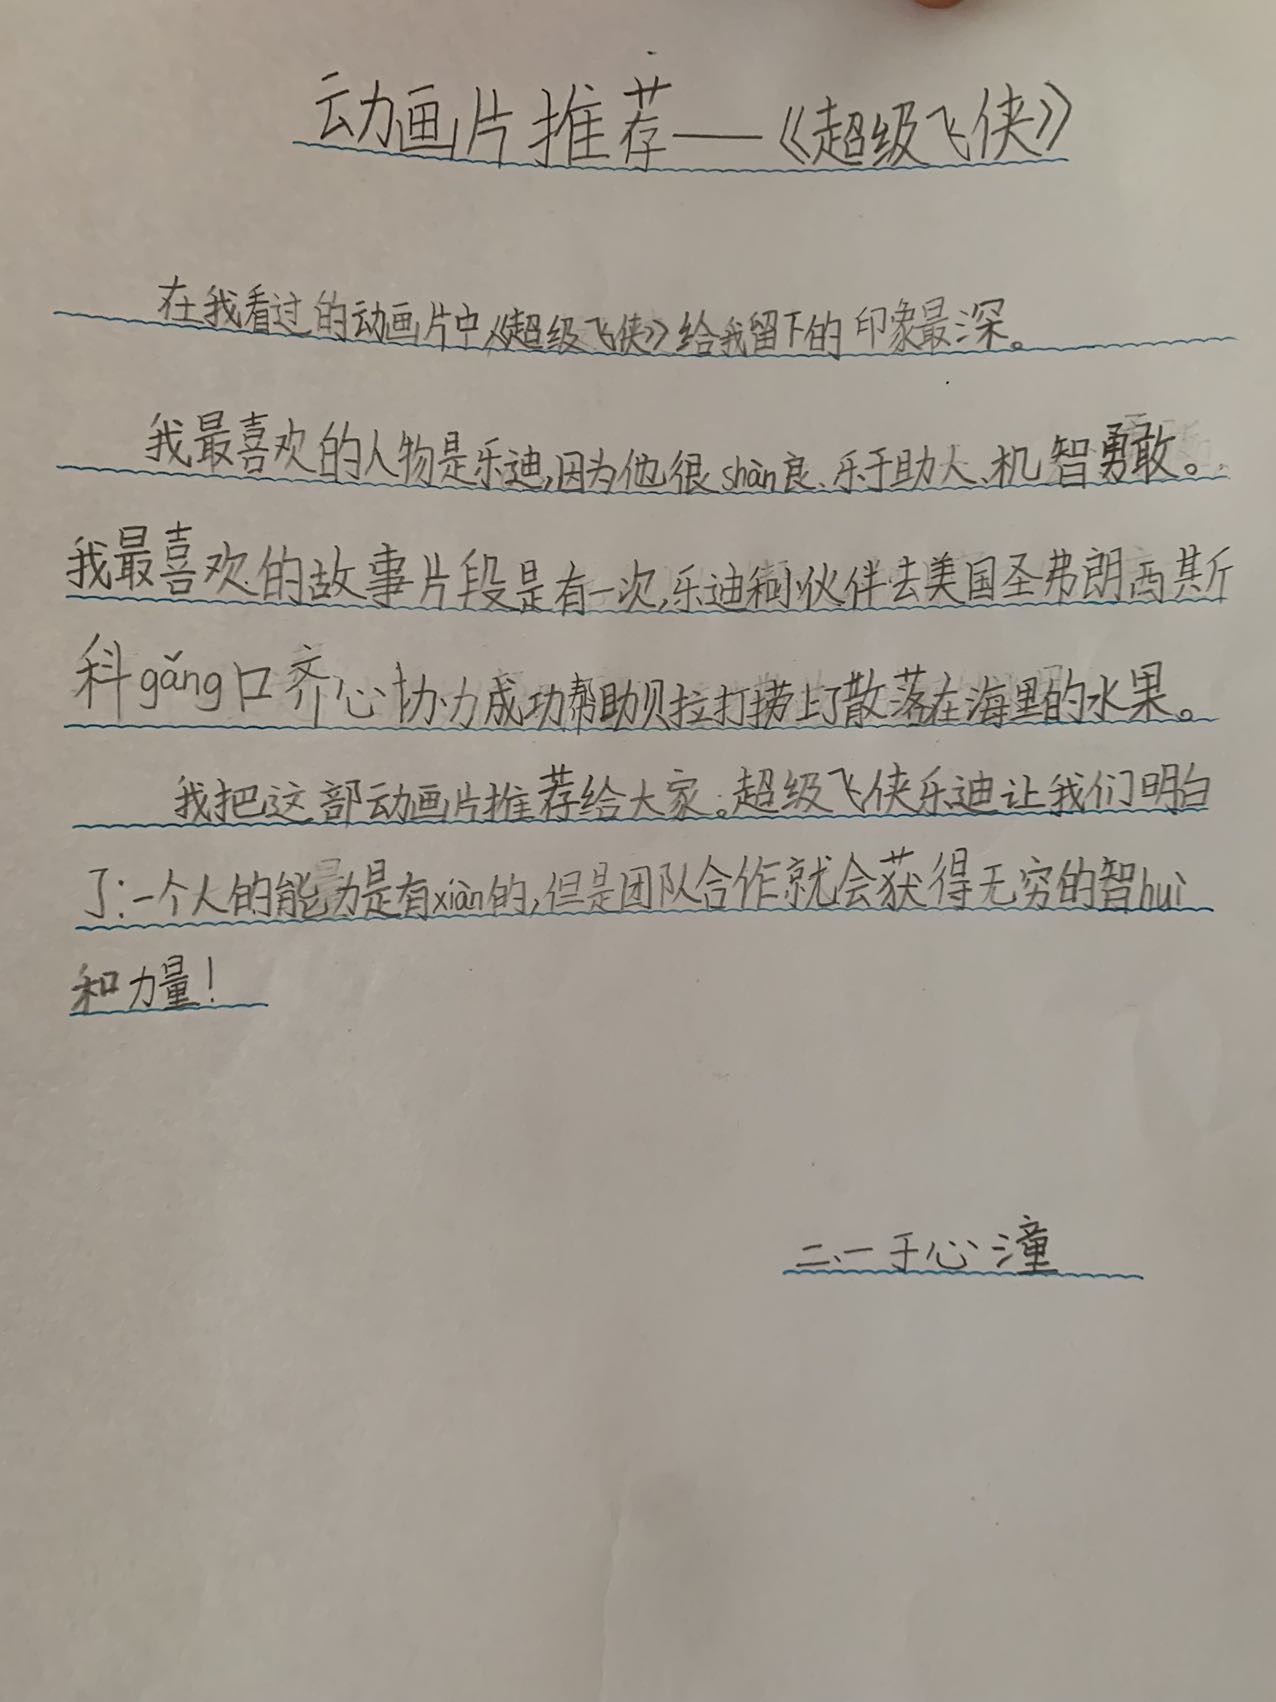 动画片推荐——《超级飞侠》
在我看过的动画片中《超级飞侠》给我留下的印象最深。
我最喜欢的人物是乐迪,因为他很shàn良、乐于助人、机智勇敢。
我最喜欢的故事片段是有一次,乐迪和小伙伴去美国圣弗朗西其斤
科gǎng口齐心协力成功帮助贝拉打捞上了散落在海里的水果。
我把这部动画片推荐给大家。超级飞侠乐迪让我们明白
了:一个人的能力是有xiàn的,但是团队合作就会获得无穷的智huì
和力量!
二、一于心潼